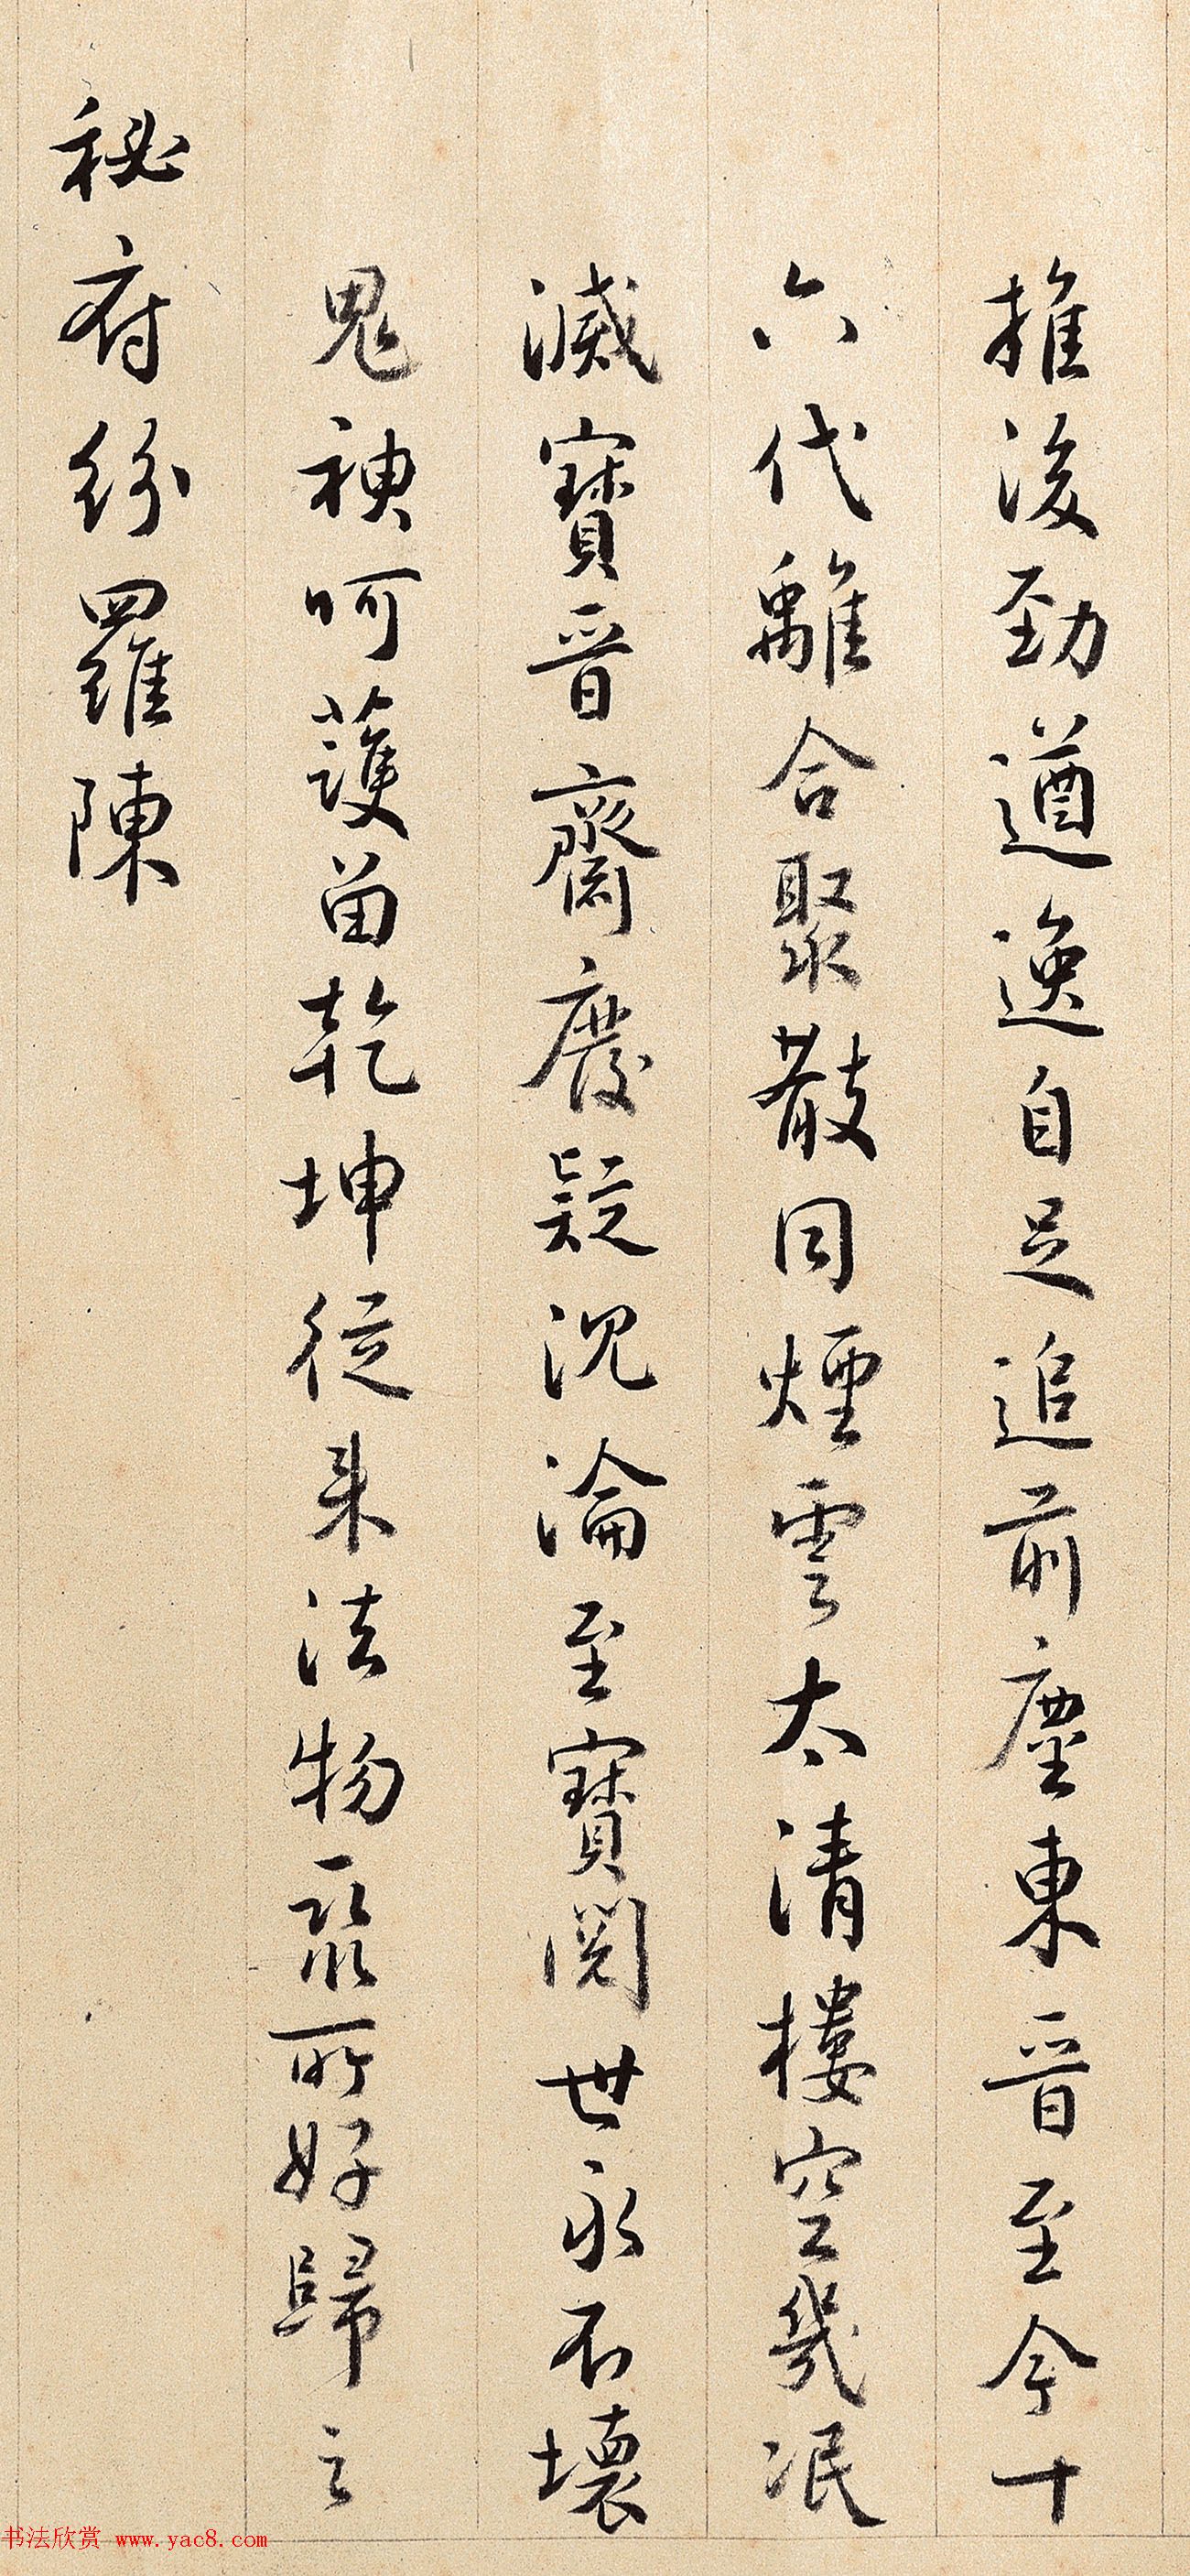 推後勁遒逸自足追前塵東晉至今十
六代離合聚散同煙雲太清樓空幾泯
滅寶晉齋廢疑沉淪至寶閱世永不壞
鬼神呵護留乾坤從来法物聚所好歸之
秘府紛羅陳
书法欣赏 www.yac8.com